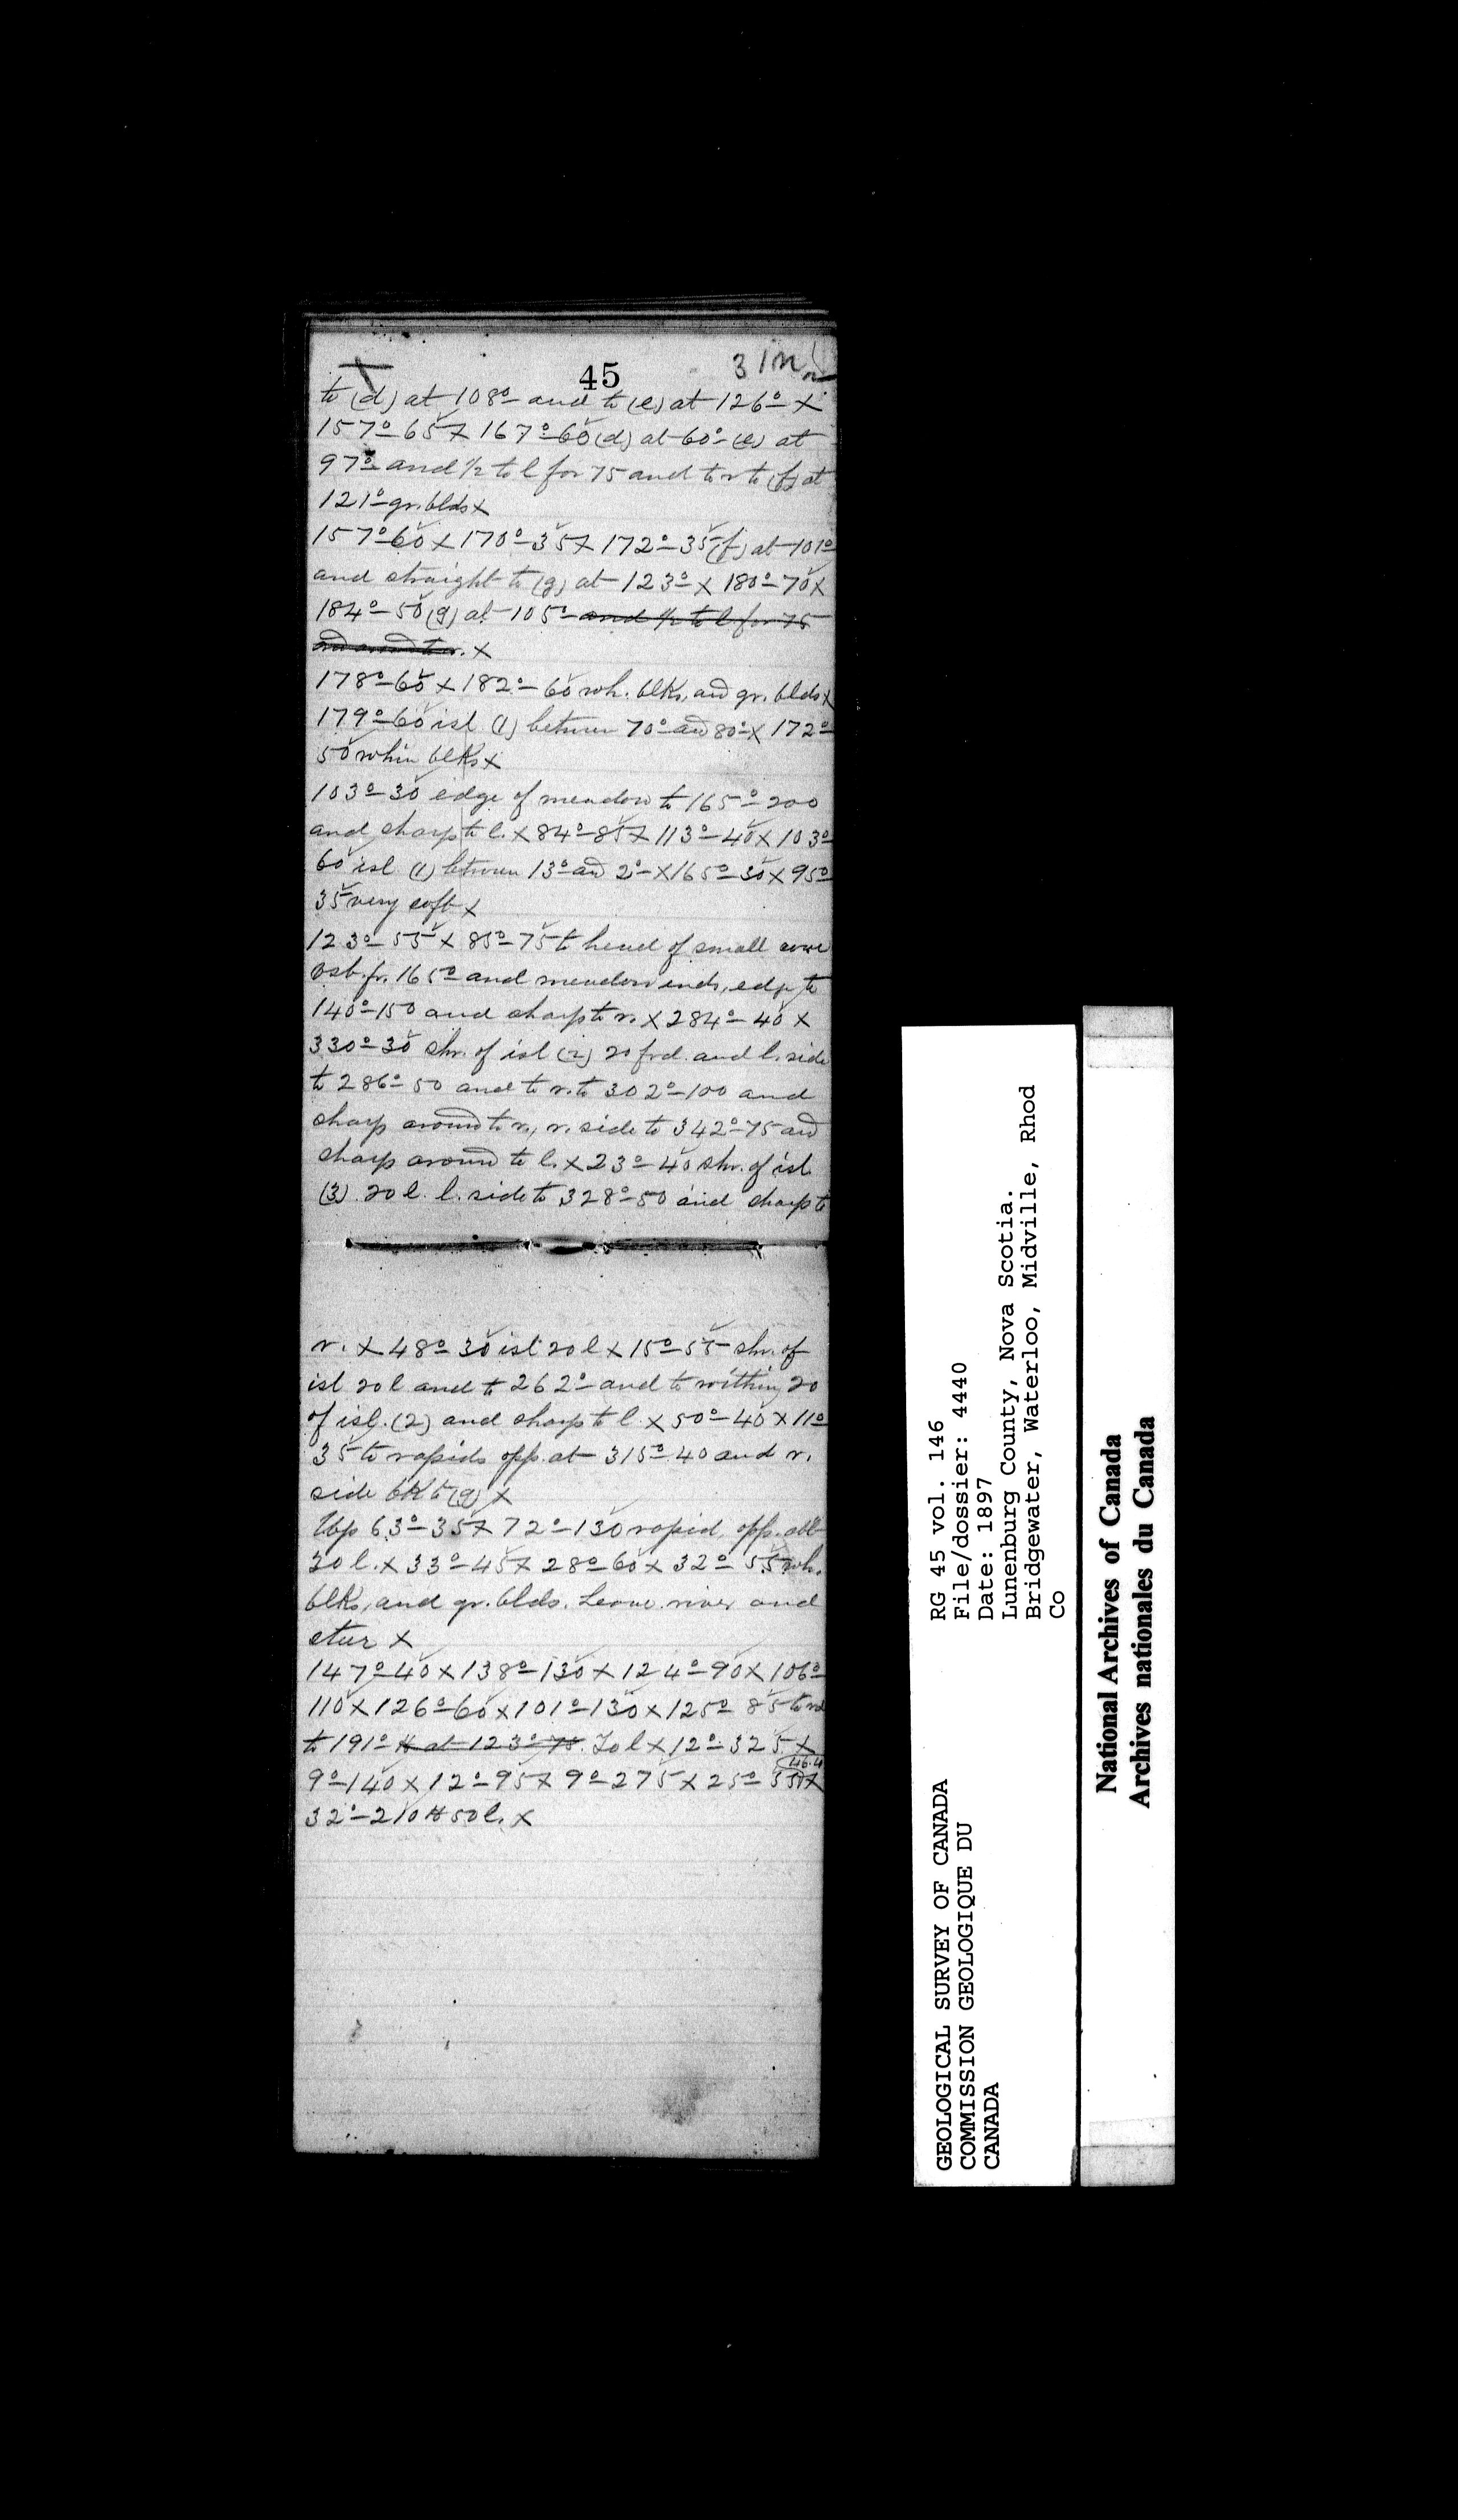 45
31
to (d) at 108°- and to (e) at 126°- X
157°-65 X 167°-60 (d) at 60°- (e) at
97°- and 1/2 to l for 75 and to r to (f) at
121°- gr. blds X
157°-60 X 170°-35 X 172°-35 (f) at 101°
and straight to (g) at 123°- X 180°-70 X
184°-50 (g) at 105°- and 1/2 to l for 75
and around to r. X
178°-60 X 182°-60 wh. blks, and gr. blds X
179°-60 isl (1) between 70° and 80°- X 172°-
50 whin blks X
103°-30 edge of meadow to 165°-200
and sharp to l. X 84°-85 X 113°-40 X 103°-
60 isl (1) between 13° and 2°- X 165°-30 X 95°-
35 very soft X
123°-55 X 85°-75 to head of small cove
obsb. fr. 165° and meadow ends, edge to
140°-150 and sharp to r. X 284°-40 X
330°-30 shr. of isl (2) 20 frd. and l. side
to 286°-50 and to r. to 302°-100 and
sharp around to r., r. side to 342°-75 and
sharp around to l. X 23°-40 shr. of isl.
(3) 20 l. l. side to 328°-50 and sharp to
r. X 48°-30 isl 20 l X 15°-55 shr. of
isl 20 l and to 262°- and to within 20
of isl. (2) and sharp to l X 50°-40 X 11°-
35 to rapids opp. at 315°-40 and r.
side bk to (g) X
Up 63°-35 X 72°-130 rapid, opp. abt
30 l. X 33°-45 X 28°-60 X 32°-55 wh.
blks, and gr. blds. Leave river and
steer X
147°-40 X 138°-130 X 124°-90 X 106°-
110 X 126°-60 X 101°-130 X 125°-85 to rd
to 191°- H at 123°-75. To l X 12°-325 X
46.4
9°-140 X 12°-95 X 9°-275 X 25°-35 X
32°-210 H 50 l. X
RG 45 vol. 146
File/dossier: 4440
Date: 1897
Lunenburg County, Nova Scotia.
Bridgewater, Waterloo, Midville, Rhod
Co
GEOLOGICAL SURVEY OF CANADA
COMMISSION GEOLOGIQUE DU
CANADA
National Archives of Canada
Archives nationales du Canada